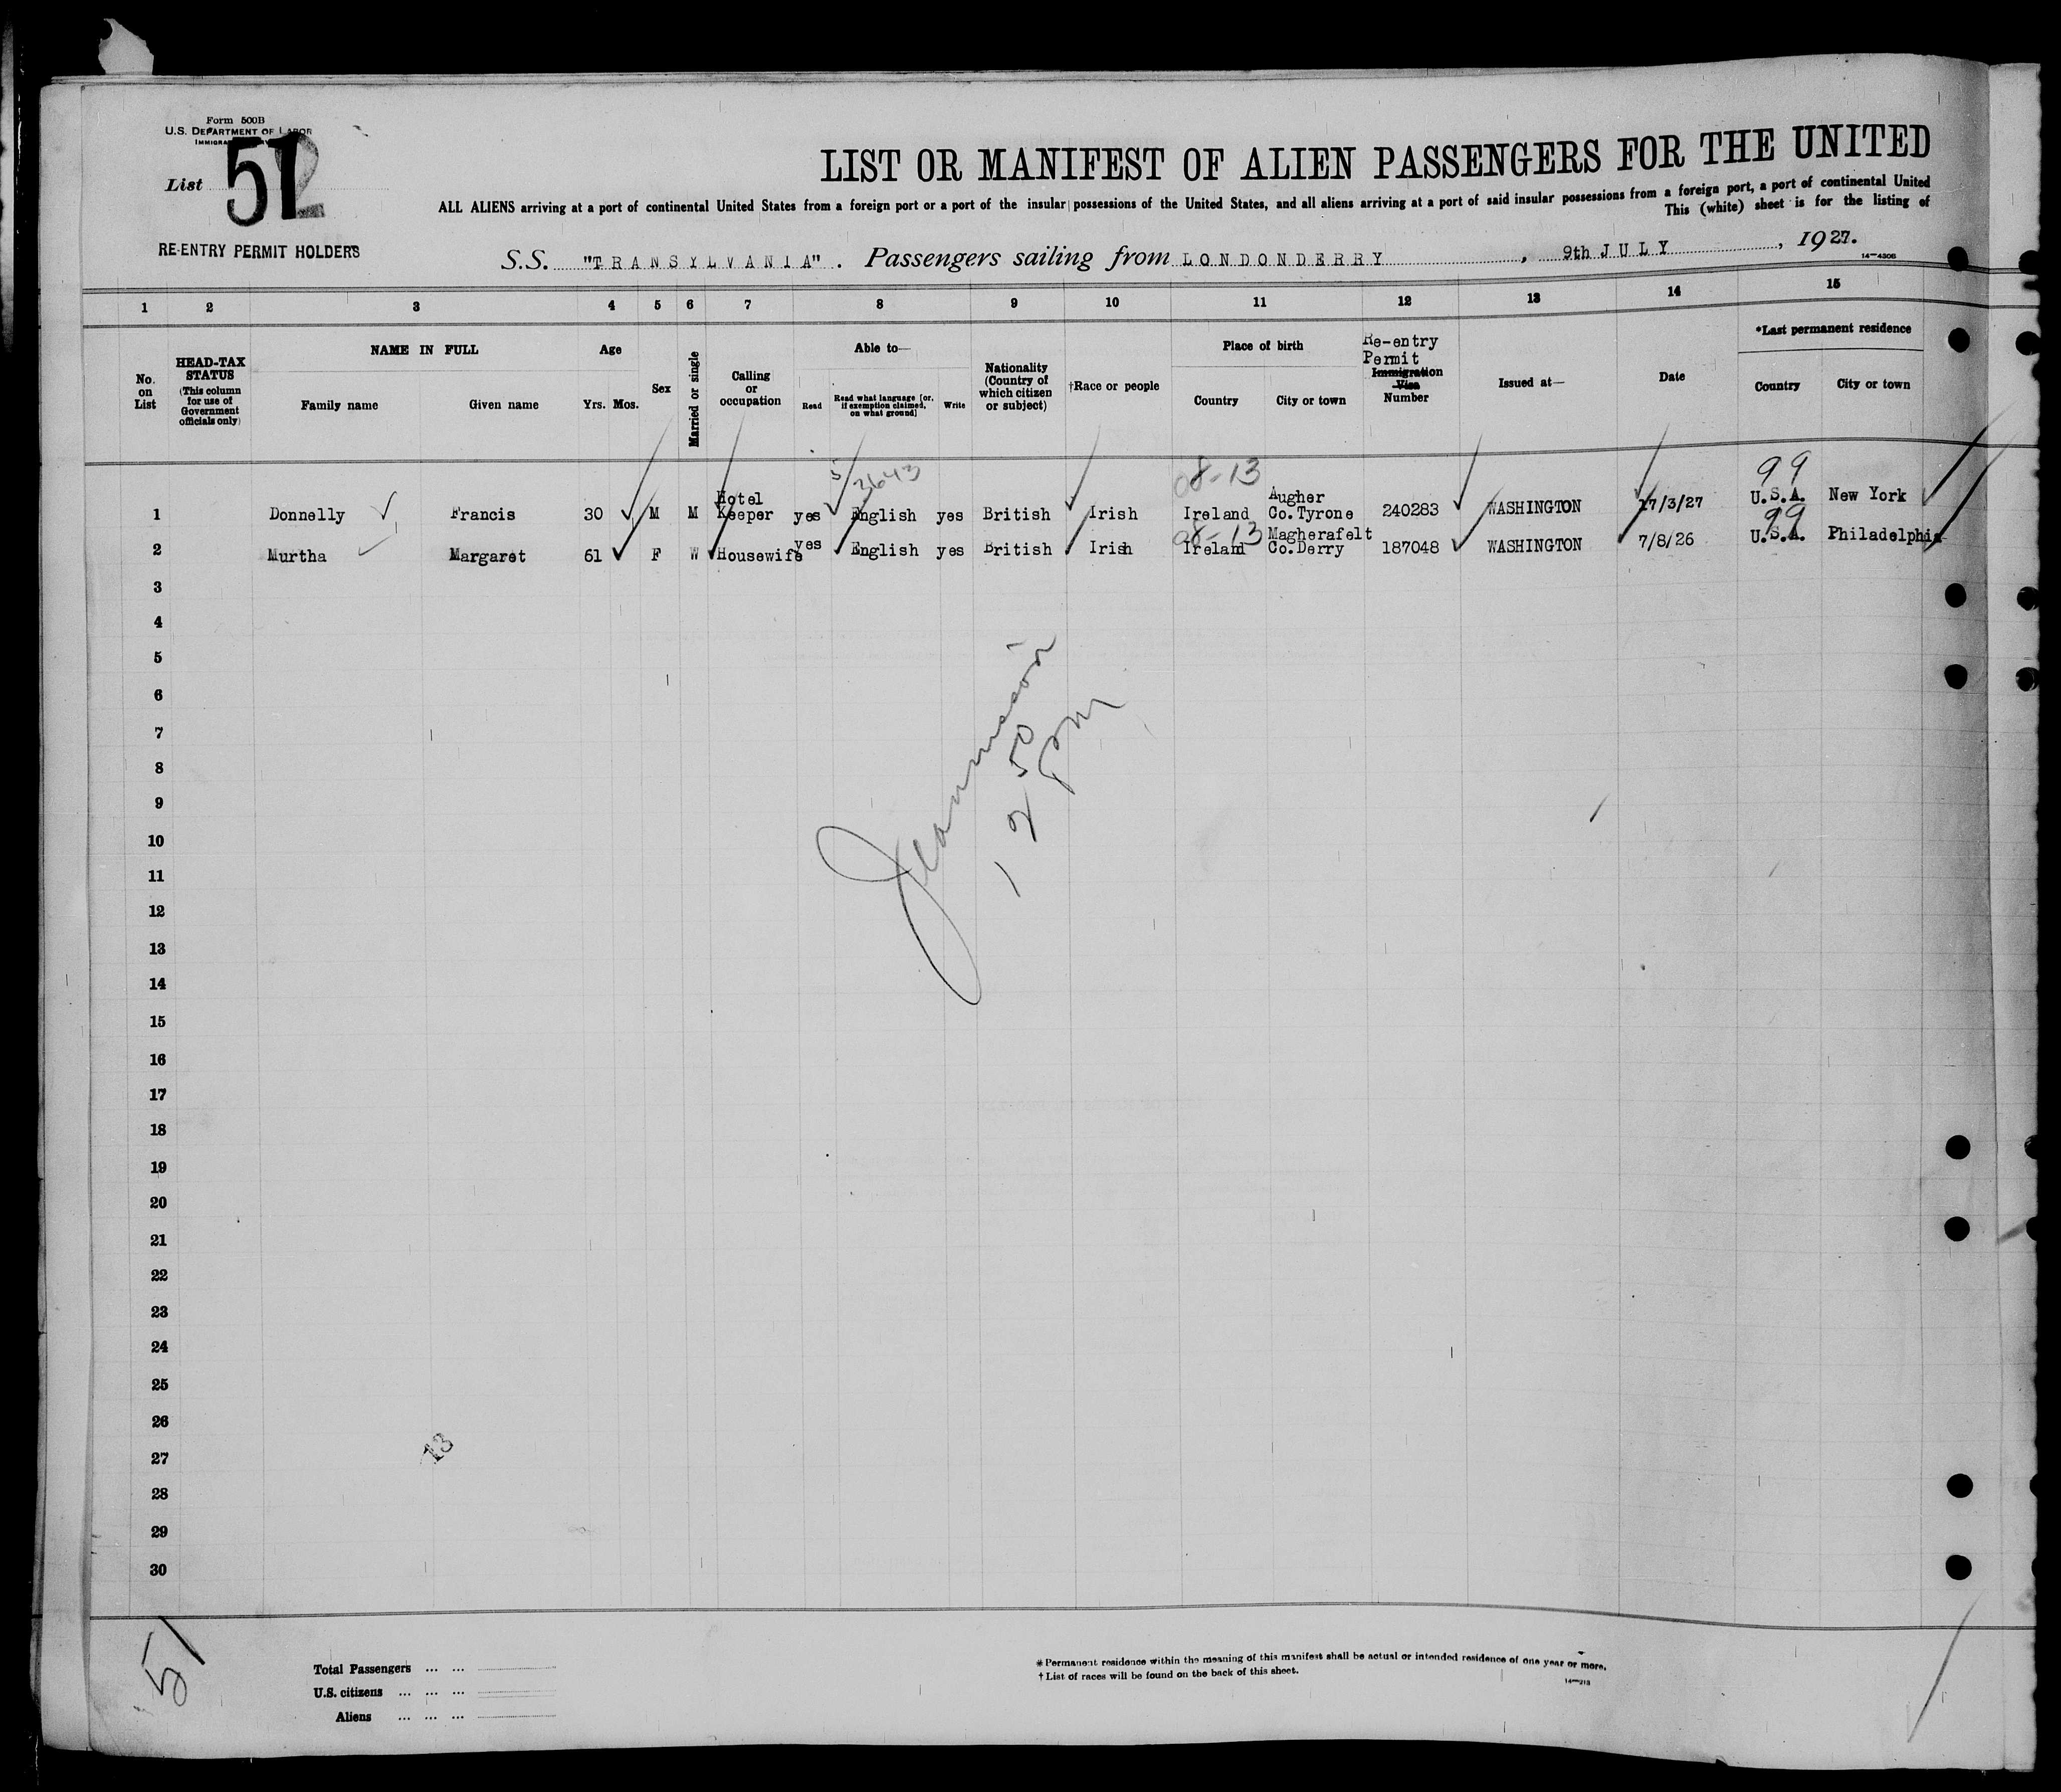 Form 500B
U.S. DEPARTMENT OF LABOR
List 51
RE-ENTRY PERMIT HOLDERS
LIST OR MANIFEST OF ALIEN PASSENGERS FOR THE UNITED
ALL ALIENS arriving at a port of continental United States from a foreign port or a port of the insular possessions of the United States, and all aliens arriving at a port of said insular possessions from a foreign port, a port of continental United
This (white) sheet is for the listing of
S.S. "TRANSYLVANIA". Passengers sailing from LONDONDERRY, 9th JULY, 1927.
14—4306
1 2 3 4 5 6 7 8 9 10 11 12 13 14 15
No. on List
HEAD-TAX STATUS (This column for use of Government officials only)
NAME IN FULL
Family name Given name
Age
Yrs. Mos.
Sex
Married or single
Calling or occupation
Able to—
Read
Read what language [or, if exemption claimed, on what ground]
Write
Nationality (Country of which citizen or subject)
†Race or people
Place of birth
Country City or town
Re-entry Permit Immigration Visa Number
Issued at—
Date
*Last permanent residence
Country City or town
5/3643
08-13
99
1 Donnelly Francis 30 M M Hotel Keeper yes English yes British Irish Ireland Augher Co.Tyrone 240283 WASHINGTON 17/3/27 U.S.A. New York
08-13
99
2 Murtha Margaret 61 F W Housewife yes English yes British Irish Ireland Magherafelt Co.Derry 187048 WASHINGTON 7/8/26 U.S.A. Philadelphia
3
4
5
6
7
8
9
10
11
12
13
14
15
16
17
18
19
20
21
22
23
24
25
26
27
28
29
30
2 50
pm
13
51
Total Passengers ... ...
U.S. citizens ... ... ...
Aliens ... ... ...
*Permanent residence within the meaning of this manifest shall be actual or intended residence of one year or more.
†List of races will be found on the back of this sheet.
14—213